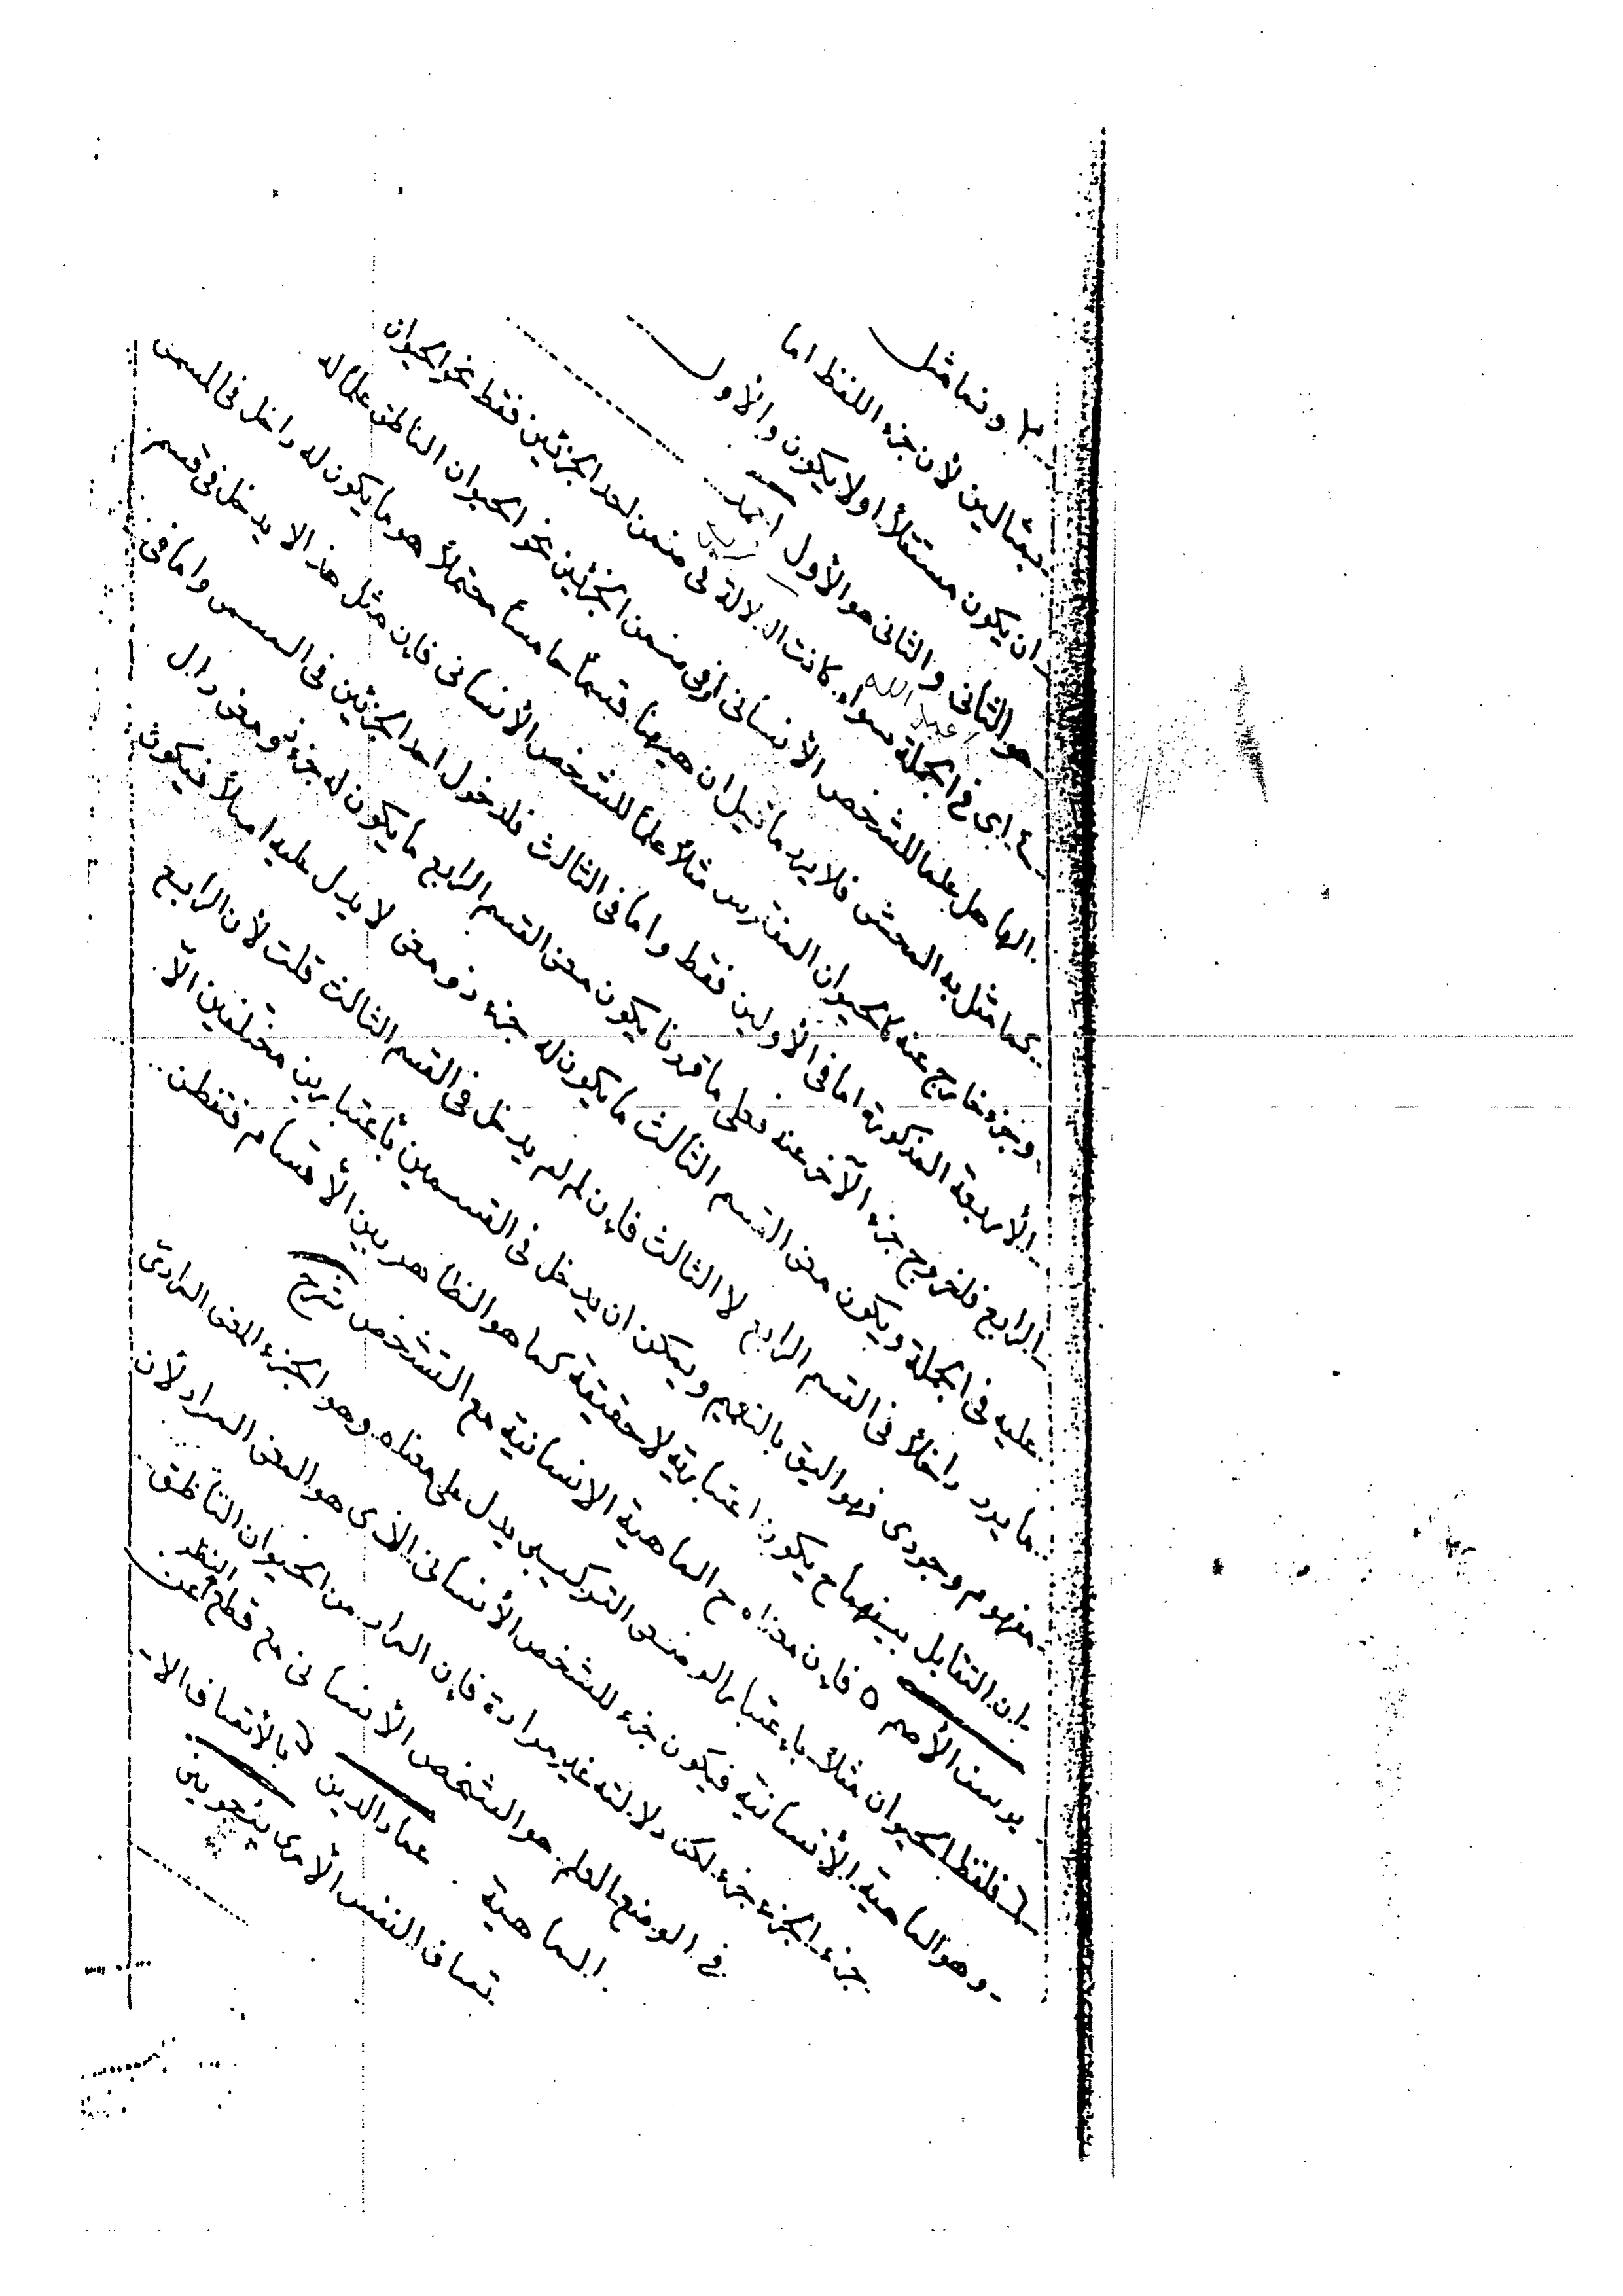 ٣ وانما مثل
بمثالين لأن جزء اللفظ اما
ان يكون مستقلاً اولا يكون والأول
هو الثانى والثانى هو الأول احمد
٤ اى فى الجملة سواء كانت الدلالة فى ضمن احد الجزئين فقط نحو الحيوان
عبد الله
الهاهل علما للشخص الأنسانى اوفى ضمن الجزئين نحو الحيوان الناطق علما له
كما مثل به المحشى فلا يرد ما قيل ان هيهنا قسماً خامساً محتملاً هو ما يكون له داخل فى المسمى
وجزء خارج عنه كالحيوان المفترس مثلاً علما للشخص الأنسانى فإن مثل هذا لا يدخل فى قسم
الأربعة المذكورة اما فى الأولين فقط واما فى الثالث فلدخول احد الجزئين فى المسمى واما فى
الرابع فلخروج جزء الآخر عنه فعلى ما قررنا يكون معنى القسم الرابع ما يكون له جزء ذو معنى دال
عليه فى الجملة ويكون معنى القسم الثالث ما يكون له جزء ذو معنى لا يدل عليه اصلاً فيكون
ما يرد داخلاً فى القسم الرابع لا الثالث فإن لم لم يدخل فى القسم الثالث قلت لأن الرابع
مفهوم وجودى فهو اليق بالتعميم ويمكن ان يدخل فى القسمين بأعتبارين مختلفين الّا
ان التقابل بينهما ح يكون اعتبارية لا حقيقة كما هو الظاهر بين الأقسام فتفطن
يوسف الأصم ٥ فإن معناه ح الماهية الانسانية مع التشخص شرح
٦ فلفظ الحيوان مثلاً باعتبار الوضعى التركيبى يدل على معناه وهو الجزء المعنى المرادى
وهو الماهية الأنسانية فيكون جزء للشخص الأنسانى الذى هو المعنى المراد لأن
جزء الجزء جزء لكن دلالته غير مرادة فإن المراد من الحيوان الناطق
فى الوضع العلم هو الشخص الأنسانى مع قطع النظر عن
الماهية عماد الدين ٩ بالأتصاف الا
تصاف النفس الأمرى پنجوينى